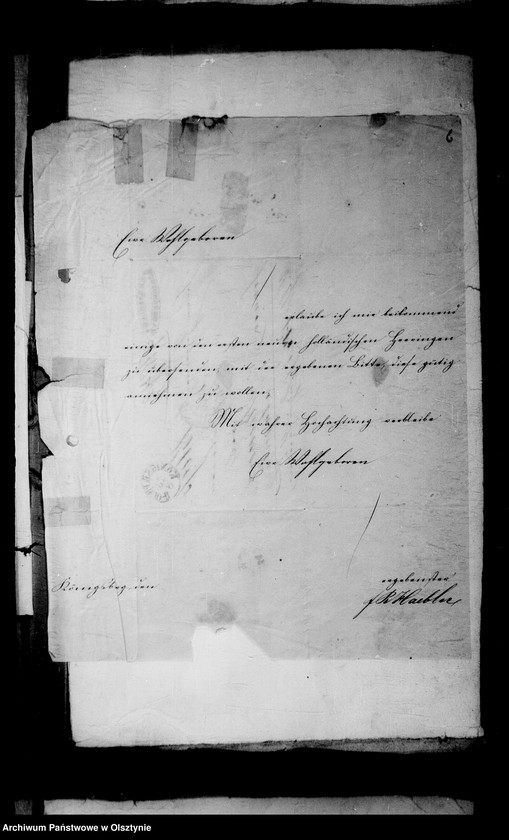 6
Ewr Wohlgeboren
erlaube ich mir beikommend
einige von den ersten neuen holländischen Heeringen
zu übersenden mit der ergebenen Bitte, diese gütig
annehmen zu wollen,
Mit wahrer Hochachtung verbleibe
Ewr Wohlgeboren
Königsberg, den
ergebenster
Haebler
Archiwum Państwowe w Olsztynie